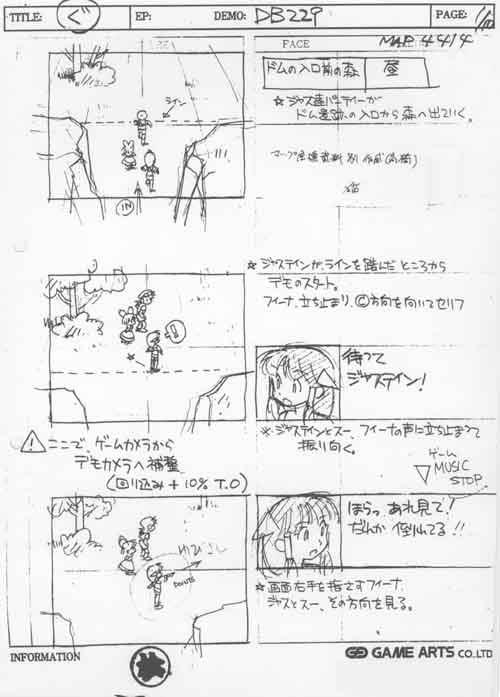 TITLE: ぐ EP: DEMO: DB229 PAGE: 1/
FACE MAP 4414
ドムの入口前の森 昼
☆ジャス達パーティーが
ドム遺跡の入口から森へ出ていく。
ライン
IN
☆ジャスティンが、ラインを踏んだところから
デモのスタート。
フィーナ、立ち止まり、Ⓒ方向を向いてセリフ
!
待って
ジャスティン!
※ジャスティンとスー、フィーナの声に立ち止まって
振り向く。
⚠ ここで、ゲームカメラから
デモカメラへ補整
(回り込み + 10% T.O)
ゲーム
MUSIC
STOP
ゆびさし
ほらっ、あれ見て!
だれか 倒れてる!!
☆画面右手を指さすフィーナ
ジャスとスー、その方向を見る。
INFORMATION
GAME ARTS CO.,LTD